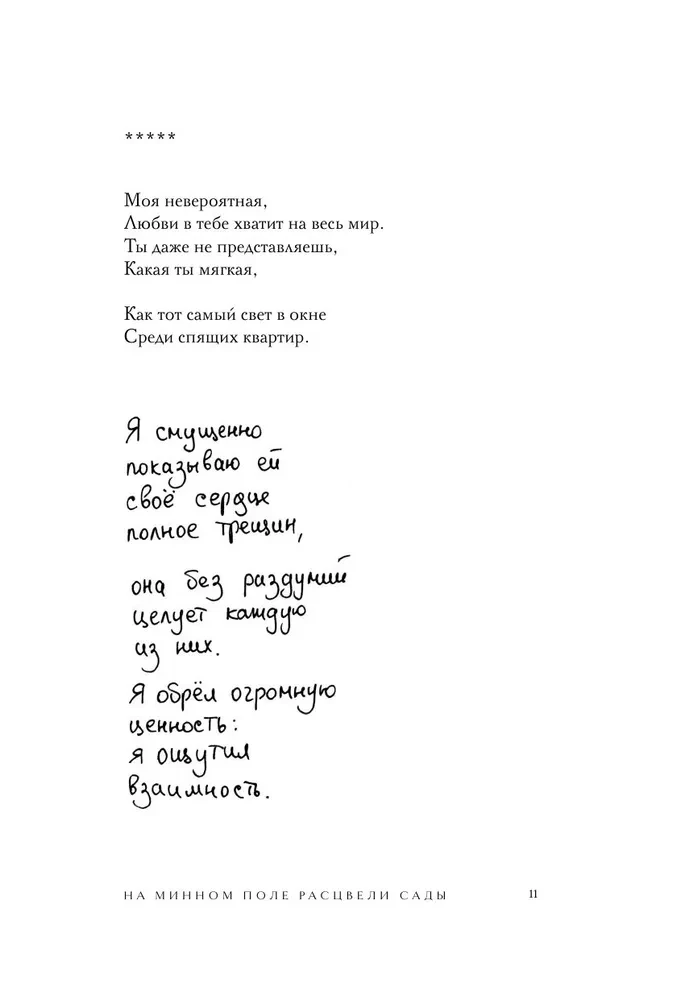 *****
Моя невероятная,
Любви в тебе хватит на весь мир.
Ты даже не представляешь,
Какая ты мягкая,
Как тот самый свет в окне
Среди спящих квартир.
Я смущенно
показываю ей
своё сердце
полное трещин,
она без раздумий
целует каждую
из них.
Я обрёл огромную
ценность:
я ощутил
взаимность.
НА МИННОМ ПОЛЕ РАСЦВЕЛИ САДЫ 11